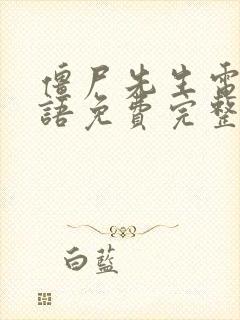 僵尸先生雷
語免費完整
白藍